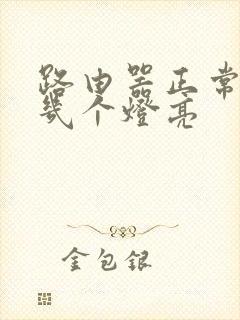 路由器正常
几个燈亮
金包銀